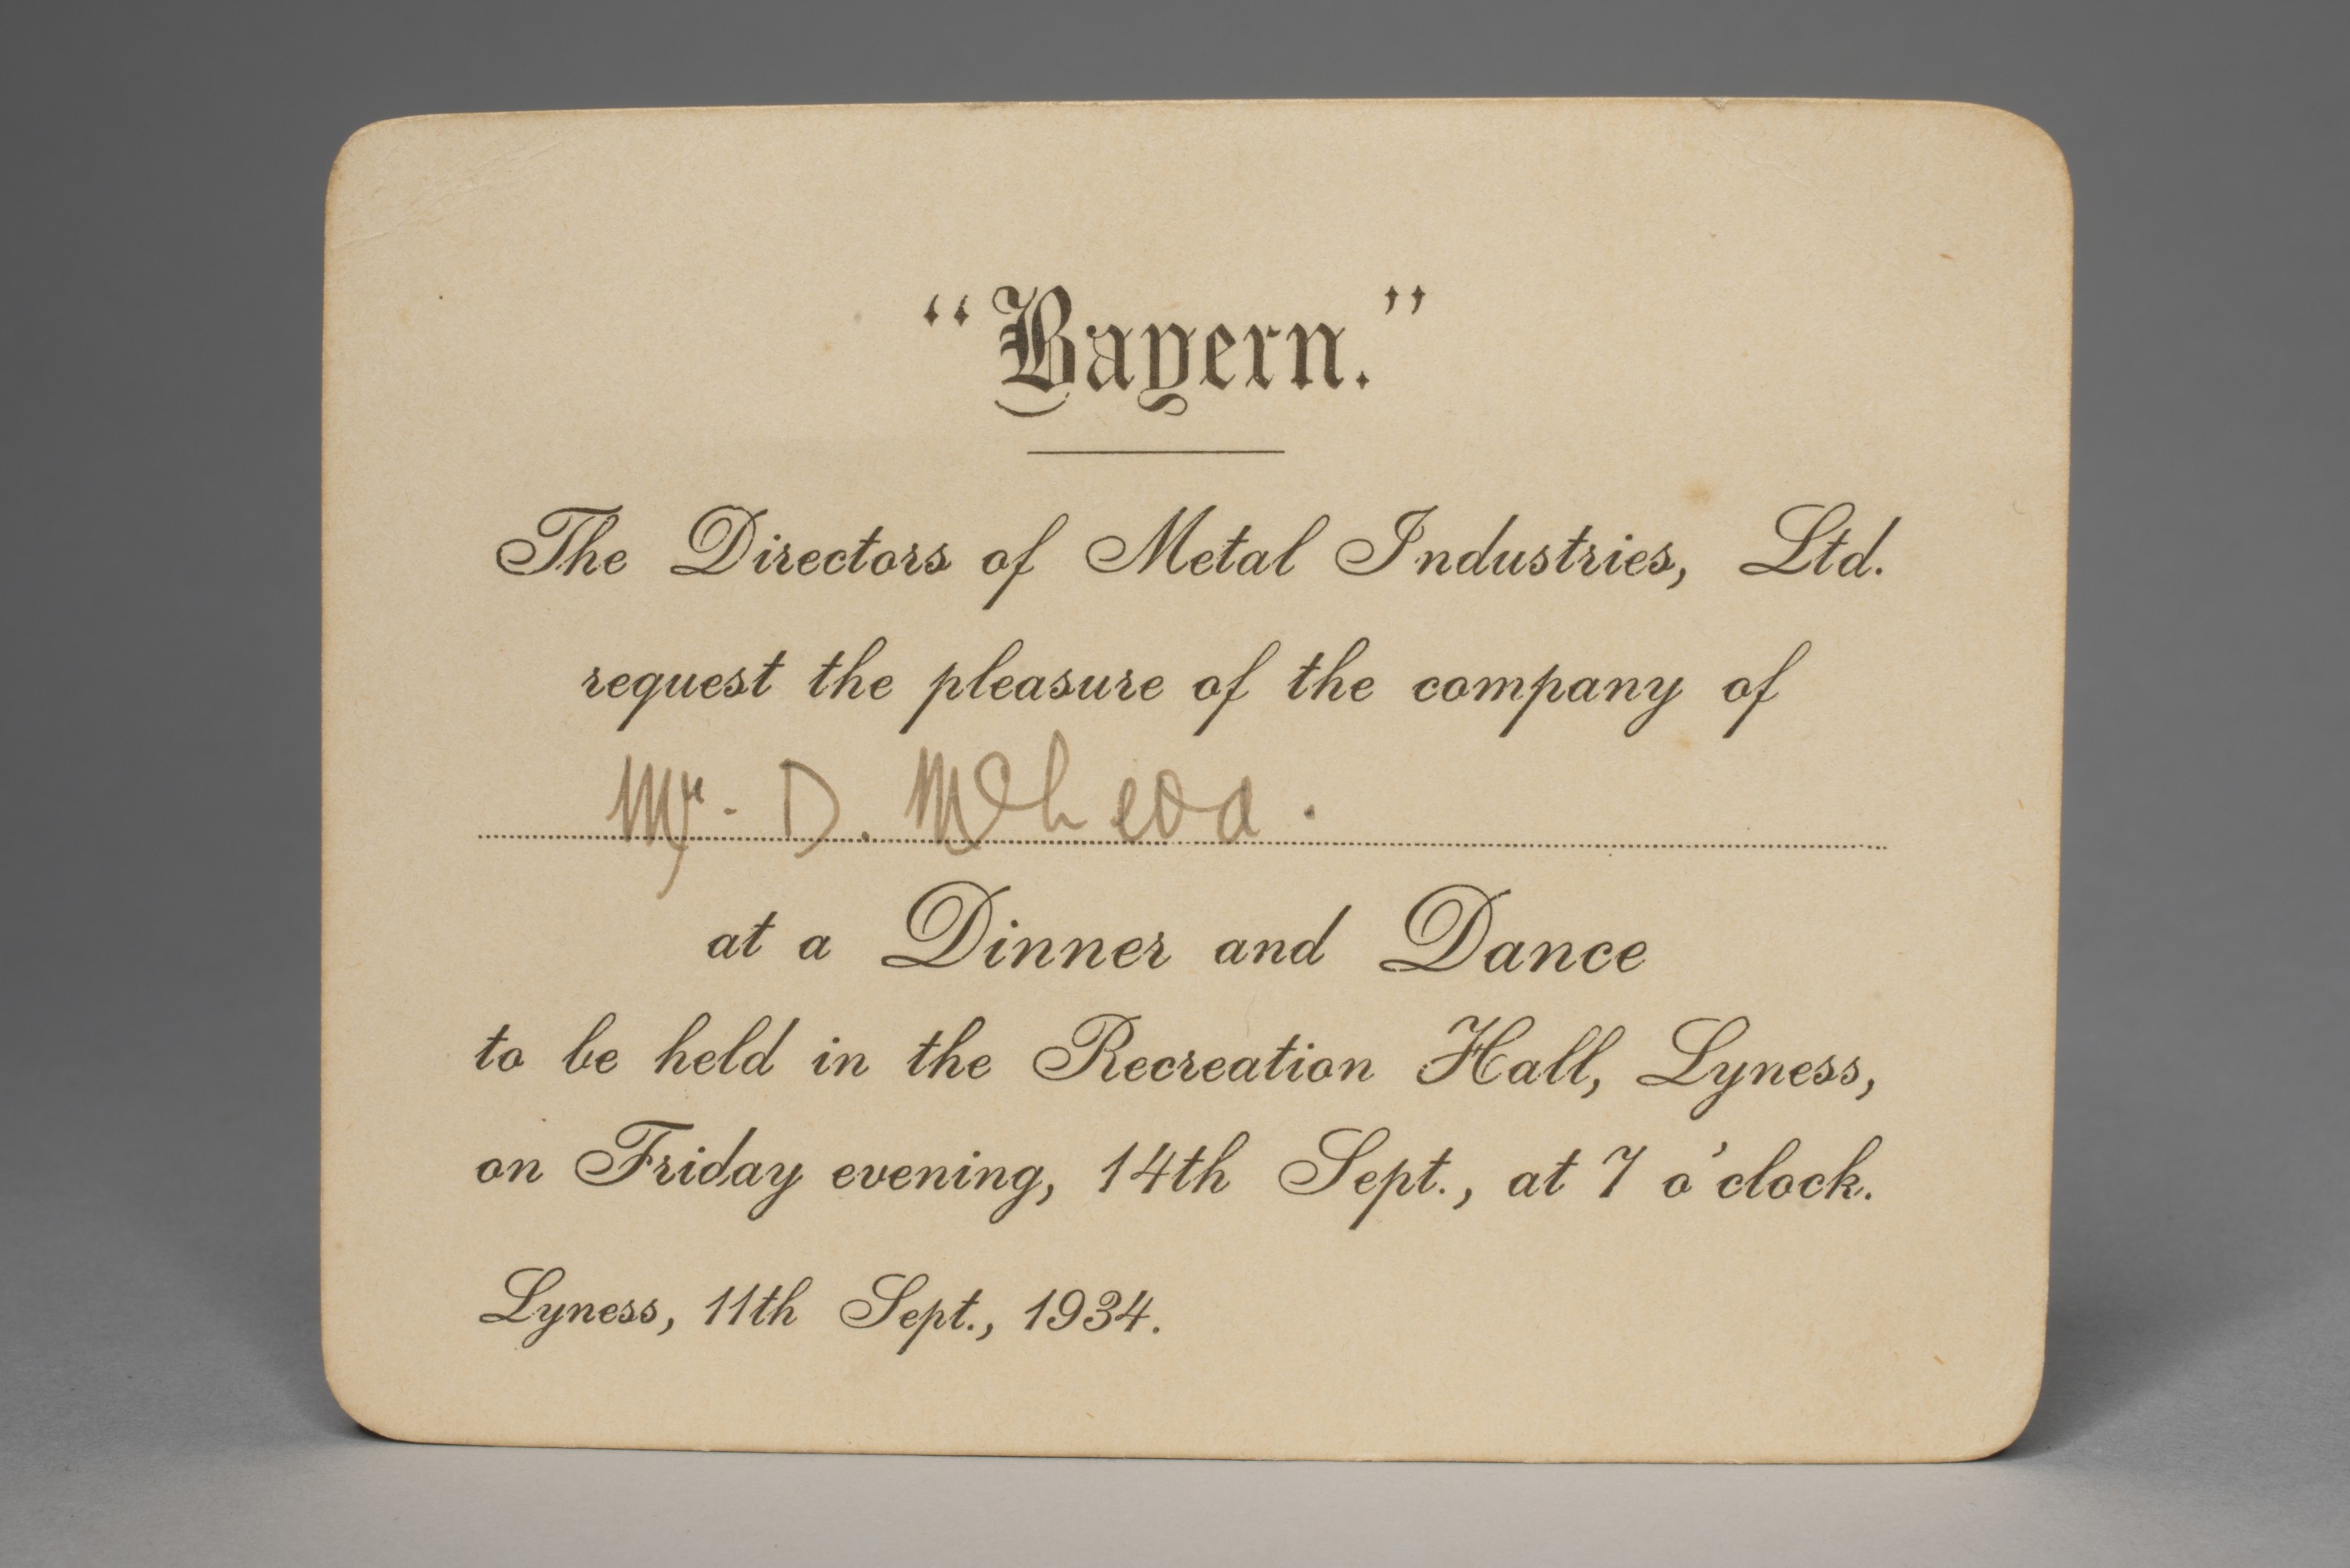 “Bayern.”
The Directors of Metal Industries, Ltd.
request the pleasure of the company of
Mr. D. McLeod.
at a Dinner and Dance
to be held in the Recreation Hall, Lyness,
on Friday evening, 14th Sept., at 7 o'clock.
Lyness, 11th Sept., 1934.